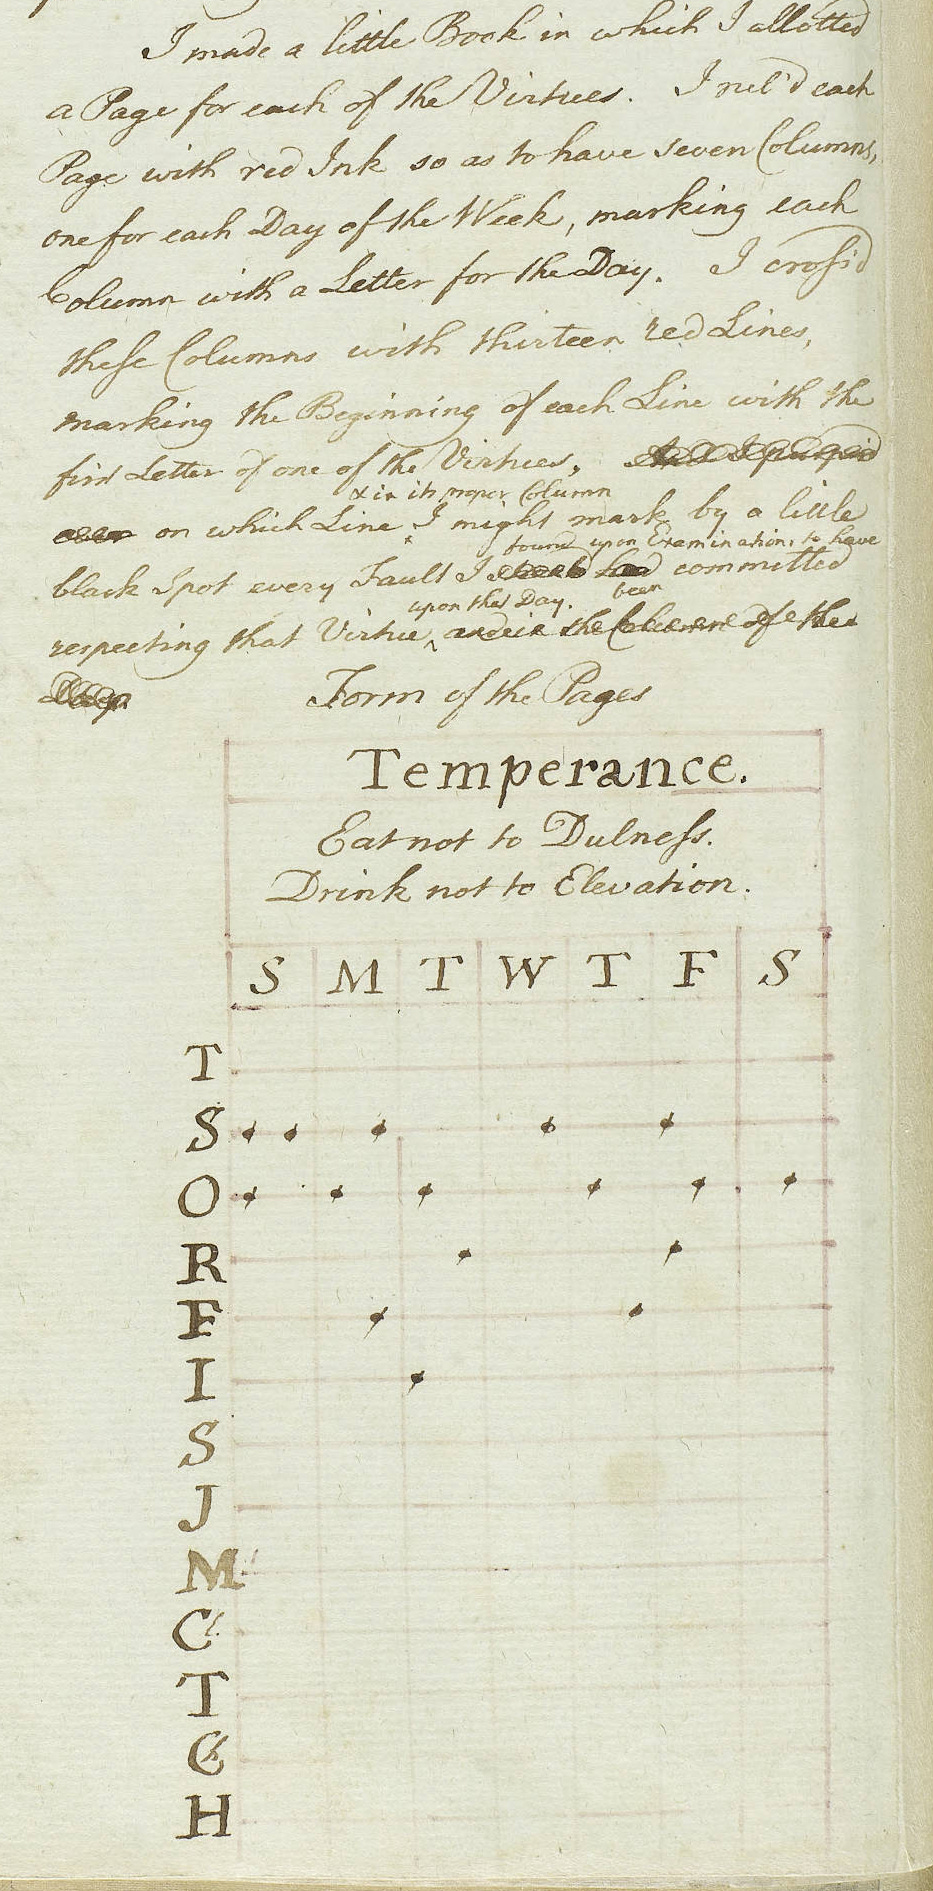 I made a little Book in which I allotted
a Page for each of the Virtues. I rul'd each
Page with red Ink so as to have seven Columns,
one for each Day of the Week, marking each
Column with a Letter for the Day. I cross'd
these Columns with thirteen red Lines,
marking the Beginning of each Line with the
first Letter of one of the Virtues,
& in its proper Column
on which Line I might mark by a little
found upon Examination, to have
black Spot every Fault I had committed
been
upon that Day.
respecting that Virtue, and in the Column of the
Day.
Form of the Pages
Temperance.
Eat not to Dulness.
Drink not to Elevation.
S M T W T F S
T
S
O
R
F
I
S
J
M
C
T
C
H